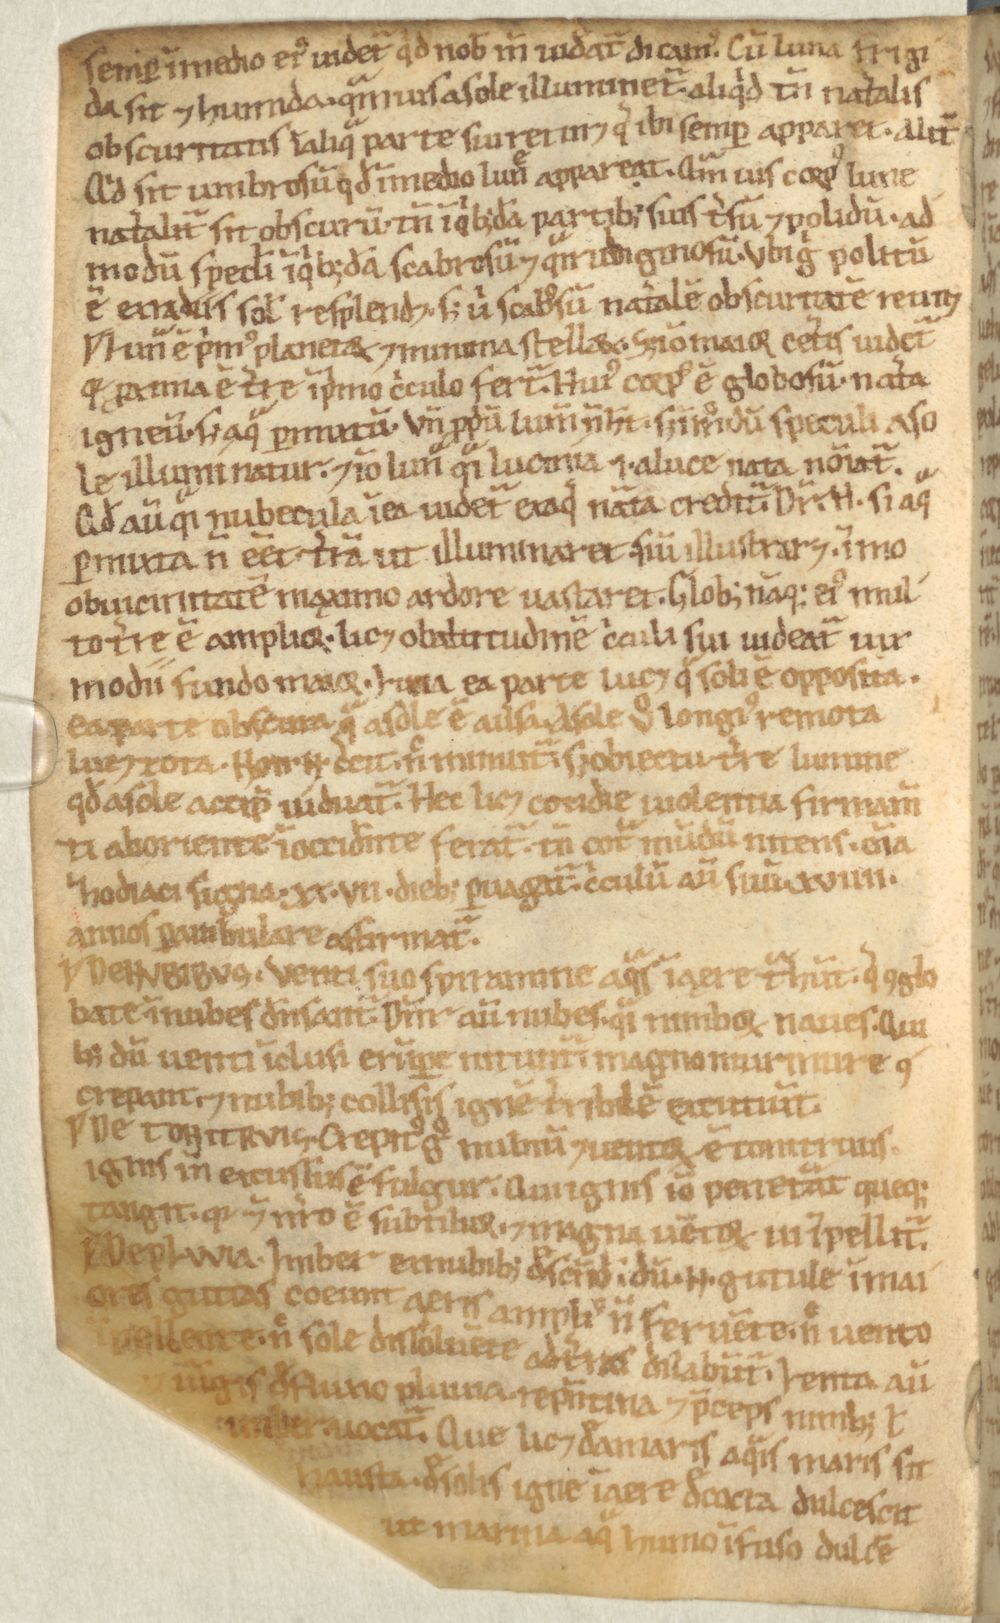 semp̄ ī medio ei⁹ uidet᷑ qd̄ nob̄ m̄ uideat᷑ dicam⁹. Cū luna frigi
da sit ⁊ humida. q̄muis a sole illuminet᷑. aliqd̄ tn̄ nat᷑alis
obscuritatis ī aliq̄ parte sui retin⁊ q̄ ibi semp̄ apparet. Alit᷑
Qd̄ sit umbrosū qd̄ ī medio lun̄e appareat. Q̄m̄ uis corp⁹ lune
nat᷑alit᷑ sit obscurū. tn̄ ī q̄b;dā partib; suis t̄sū ⁊ polidū. ad
modū specl̄i ī q̄b;dā scabrosū ⁊ q̄i rubiginosū. Vbi g̊ politū
ē ex radiis sol̄ resplend⁊. s; ū scab̊sū nat᷑alē obscuritatē retin⁊
lun̄ ē p̄m⁹ planetaꝝ ⁊ minima stellaꝝ. S; iō maioꝝ cet̄is uidet᷑
q̄ ꝓxima ē t̄re ī p̄mo c̄culo fert᷑. Hui⁹ corp⁹ ē globosū. nat᷑a
igneū. s; aq̄ p̄mixtū. Vn̄ ꝓp̄ū lum̄ n̄ ht̄. s; ī m̊dū speculi a so
le illuminatur. ⁊ iō lun̄ q̄i lucina .i. a luce nata nōiat᷑.
Qd̄ aū q̄i nubecula ī ea uidet᷑ ex aq̄ nat᷑a credit᷑. Dr̄. N. si aq̄
p̄mixta n̄ eēt t̄rā ut illuminaret sui illustrar⁊. īmo
ob uicinitatē maximo ardore uastaret. Glob; nāq: ei⁹ mul
to t̄re ē amplioꝝ. lic⁊ ob altitudinē c̄culi sui uideat᷑ uix
modii fundo maioꝝ. Luna ea parte luc⁊ q̄ soli ē opposita.
ea parte obscura q̄ a sole ē auisa. A sole ů longi⁹ remota
luc⁊ tota. Non N c̊cit. n̊ minuit᷑. s; obiectu t̄re lumine
qd̄ a sole accip̄ uiduat᷑. Hec lic⁊ cotidie uiolentia firmam̄
ti ab oriente ī occidēnte ferat᷑. tn̄ cōt᷑ mūdū nitens. oīa
hodiaci signa. xx. vii. dieb; p̄uagat᷑. c̄culū aū suū. xviiii.
annos p̄ambulare affirmat᷑.
De Nubibus. Venti suo spiramine aq̄s ī aere t̄hūt. q̄ ꝯglo
bate ī nubes d̄nsant᷑. Dn̄r aū nubes. q̄i nimboꝝ naues. Qui
b; dū uenti īclusi erūpe nitunt᷑ magno murmure ꝯ
crepant. ⁊ nubib; collisis ignē t̄ribilē excutiūt.
De tonitruis. Crepit⁹ g̊ nubiū ⁊ uentoꝝ ē tonitruus.
ignis in excussus ē fulgur. Qui ignis iō penet᷑at queq;
tangit. q̄ ⁊ n̄ro ē subtilioꝝ. ⁊ magna uētoꝝ ui īpellit᷑.
De pluvia. Imber ex nubib; d̄scnd̄. dū. N. gutule ī mai
ores guttas coeunt aeris ampli⁹ n̄ feruēte. n̊ uento
īpellente. n̊ sole dissoluete ad t̄ras dilabūt᷑. Lenta aū
⁊ iugis d̄fluxio pluuia. rep̄ntina ⁊ p̄ceps nimb; ł
imber uocat᷑. Que lic⁊ d̄ amaris aq̄is maris sit
hausta. t̊ solis igne ī aere d̄cocta dulcescit
ut marina aq̄ humo īfuso dulcē